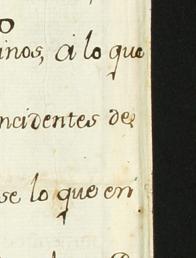 o
inos, á lo que
ncidentes de
se lo que en